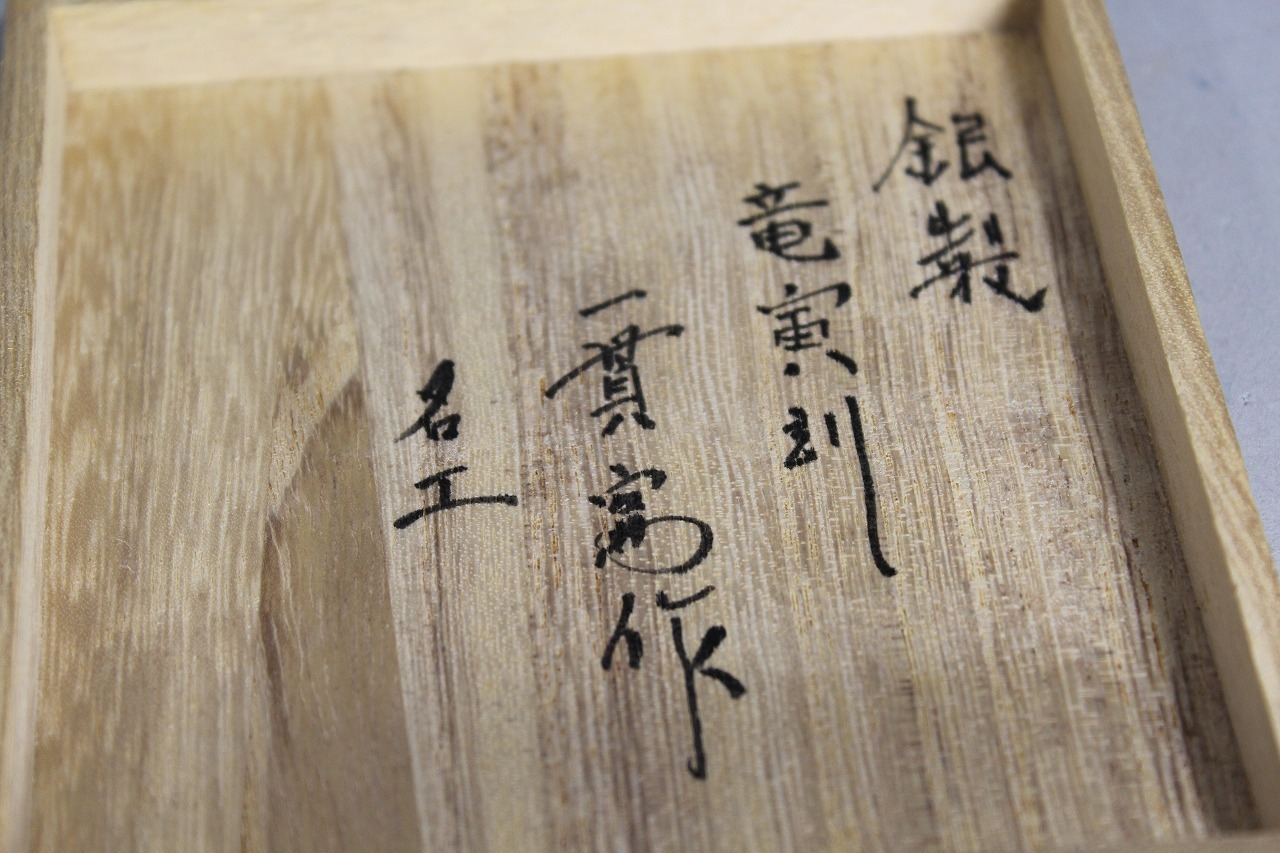 銀製
竜寅刻
一貫斎作
名工